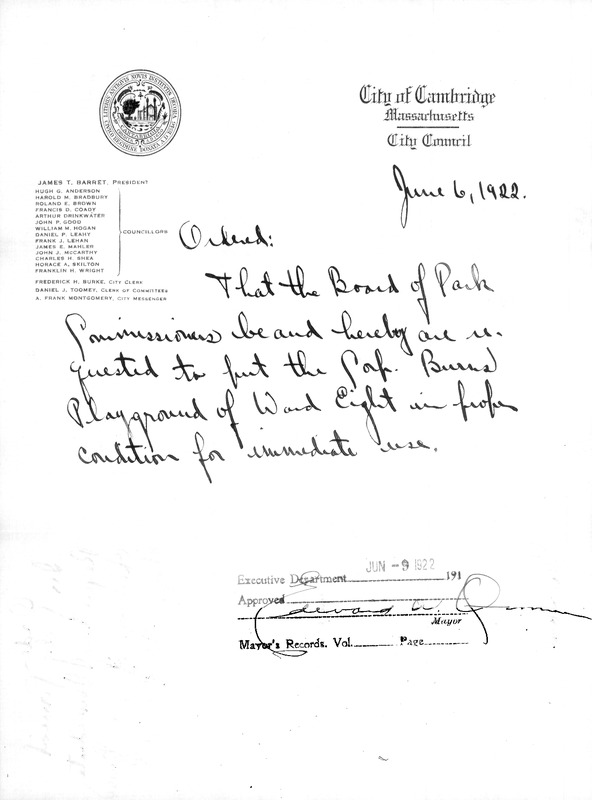 LITERIS ANTIQUIS NOVIS INSTITUTIS DECORA
City of Cambridge
Massachusetts
City Council
June 6, 1922.
JAMES T. BARRET, PRESIDENT
HUGH G. ANDERSON
HAROLD M. BRADBURY
ROLAND E. BROWN
FRANCIS D. COADY
ARTHUR DRINKWATER
JOHN P. GOOD
WILLIAM M. HOGAN
DANIEL P. LEAHY
FRANK J. LEHAN
JAMES E. MAHLER
JOHN J. MCCARTHY
CHARLES H. SHEA
HORACE A. SKILTON
FRANKLIN H. WRIGHT
COUNCILLORS
FREDERICK H. BURKE, CITY CLERK
DANIEL J. TOOMEY, CLERK OF COMMITTEES
A. FRANK MONTGOMERY, CITY MESSENGER
Ordered:
That the Board of Park
Commissioners be and hereby are re-
quested to put the Corp. Burns
Playground of Ward Eight in proper
condition for immediate use.
JUN -9 1922
Executive Department 191
Approved
Edward W. Quinn
Mayor
Mayor's Records. Vol. Page